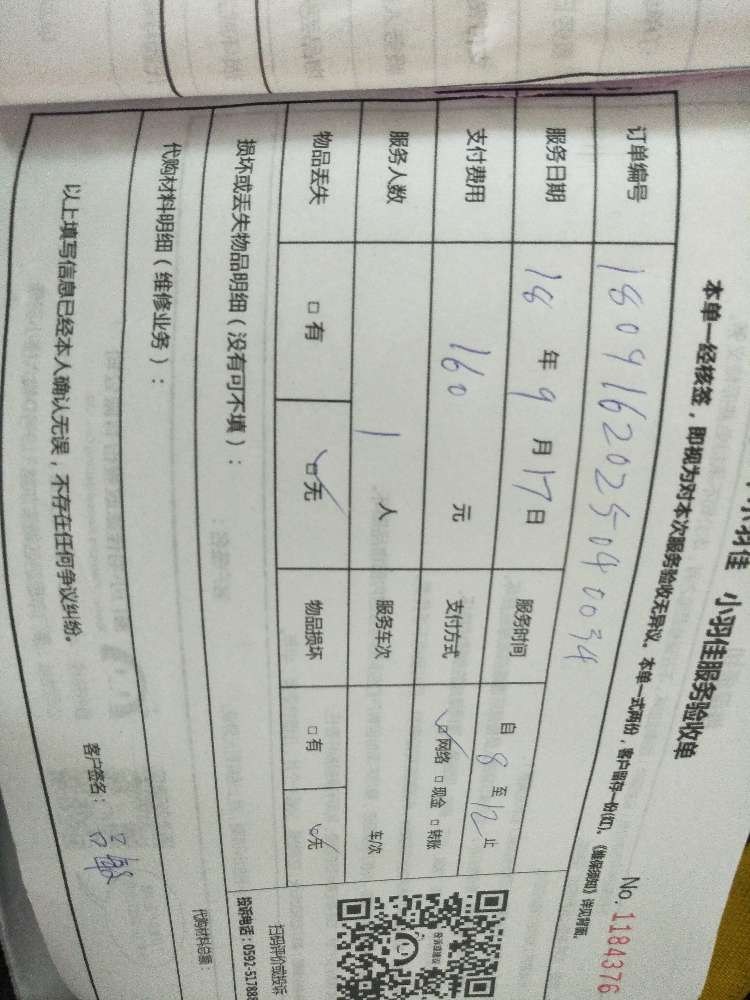 小羽佳 小羽佳服务验收单
No. 1184376
本单一经核签，即视为对本次服务验收无异议。本单一式两份，客户留存一份(红)。《维保须知》详见背面。
订单编号 180916202504 0034
服务日期 18 年 9 月 17 日 服务时间 自 8 至 12 止
支付费用 160 元 支付方式 ☑网络 □现金 □转账
服务人数 1 人 服务车次 车/次
物品丢失 □有 ☑无 物品损坏 □有 ☑无
损坏或丢失物品明细（没有可不填）：
扫码评价或投诉
投诉电话：0592-51788
代购材料明细（维修业务）：
代购材料总额：
以上填写信息已经本人确认无误，不存在任何争议纠纷。
客户签名：